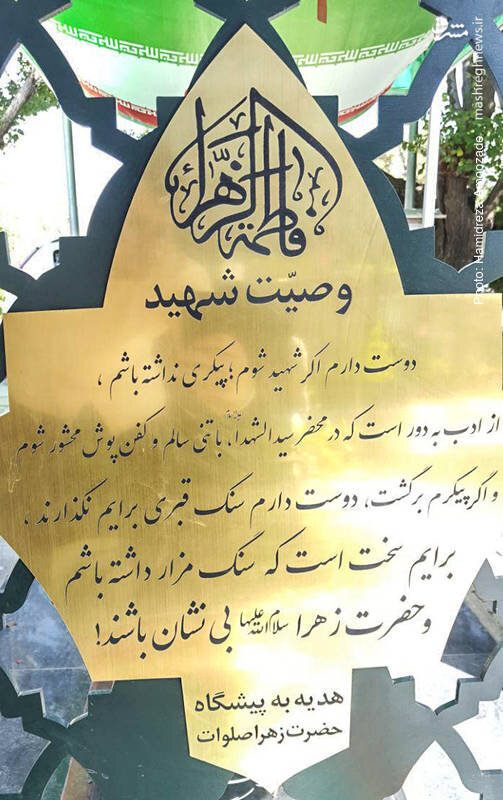 مشرق
mashreghnews.ir
Photo: Hamidreza
فاطمة الزهراء
وصیّت شهید
دوست دارم اگر شهید شوم؛ پیکری نداشته باشم ،
از ادب به دور است که در محضر سیدالشهدا، با تنی سالم و کفن پوش محشور شوم
و اگر پیکرم برگشت، دوست دارم سنگ قبری برایم نگذارند ،
برایم سخت است که سنگ مزار داشته باشم
و حضرت زهرا سلام‌الله‌علیها بی نشان باشند!
هدیه به پیشگاه
حضرت زهرا صلوات